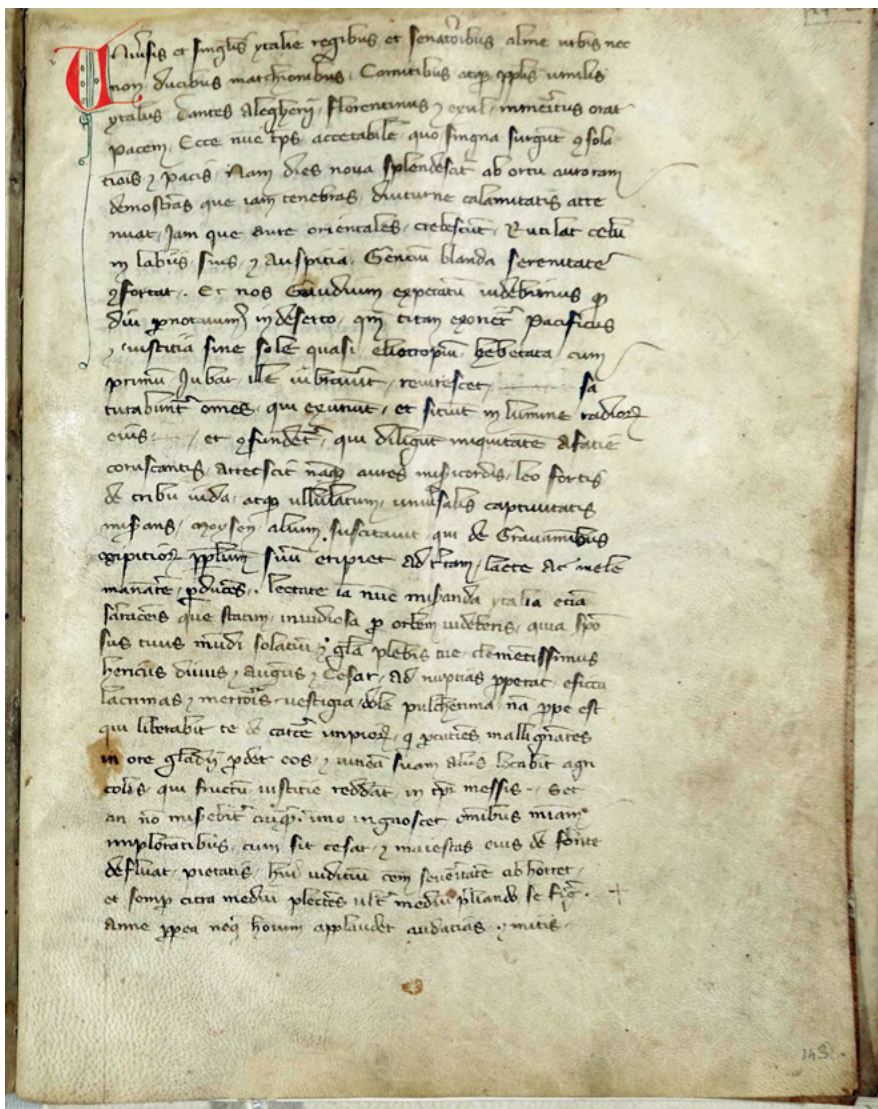 Uniusis et singlis ytalie regibus et senatoribus alme urbis nec
non ducibus marchionibus. Comitibus atqꝫ pplis humilis
ytalus dantes Alegherii florentinus ⁊ exul inmeritus orat
pacem. Ecce nuc tps acceptabile quo singna surgut ꝯsola
tiois ⁊ pacis. Nam dies nova splendescit ab ortu auroram
demostras que iam tenebras diuturne calamitatis atte
nuat. Jam que aure orientales crebescut. Rutilat celu
in labiis suis ⁊ Auspitia. Gentiu blanda serenitate
ꝯfortat. Et nos Gaudium expetatu videbimus q
diu in deserto. qm titan exoriet Pacificus
⁊ iusticia sine sole quasi eliotropiu hebetata cum
primu Jubar ille vibraverit reviresscet sa
turabunt omes qui exuriut et sitiut in lumine radioꝝ
eius et ꝯfundet qui diligut iniquitate a fatie
coruscantis arrescit naqꝫ aures misicordis leo fortis
de tribu iuda atqꝫ ullulatum universalis captivitatis
misans moysen alium suscitavit qui de Gravaminibus
egiptioꝝ pplum suu eripiet ad tram lacte ac melle
manate pduces. letare ia nuc misanda ytalia etia
saracenis que statim invidiosa p orbem videberis quia spo
sus tuus mudi solatiu ⁊ gla plebis tue clemetissimus
henricus divus ⁊ augus ⁊ Cesar ad nuptias pperat. esicca
lacrimas ⁊ meroris vestigia dele pulcherima na ppe est
qui liberabit te de carce impioꝝ q pcuties malligrates
in ore gladii pdet eos ⁊ vinea suam aliis locabit agri
colis qui fructu iusticie reddat in tpr messis. Set
an no misebit cuiqꝫ. imo ingnoscet omibus miam
imploratibus cum sit cesar ⁊ maiestas eius de fonte
defluat pietatis. hui iuditiu oem severitate abhorret
et semp citra mediu plectes ult mediu pliando se figr.
Anne ppea neqꝫ horum applaudet audacias ⁊ initis
143